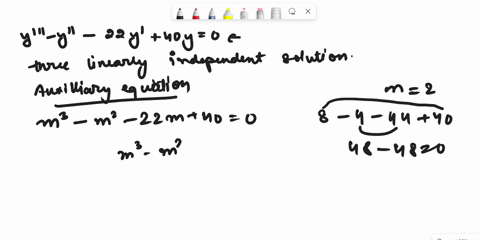 y''' - y'' - 22y' + 40y = 0 e
three linearly independent solution.
Auxilliary equation
m³ - m² - 22m + 40 = 0
m³ - m²
m = 2
8 - 4 - 44 + 40
48 - 48 = 0